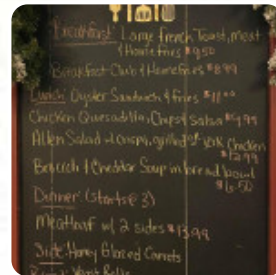 Breakfast: Large french Toast, meat
& Homefries $9.50
Breakfast Club & Homefries $8.99
Lunch: Oyster Sandwich & fries $11.00
Chicken Quesadilla, Chips & Salsa $9.99
Allen Salad - Crispy, grilled or Jerk Chicken
$12.99
Broccoli & Cheddar Soup in bread bowl
$6.50
Dinner: (starts @ 3)
Meatloaf w/ 2 sides $13.99
Side: Honey Glazed Carrots
Rolls